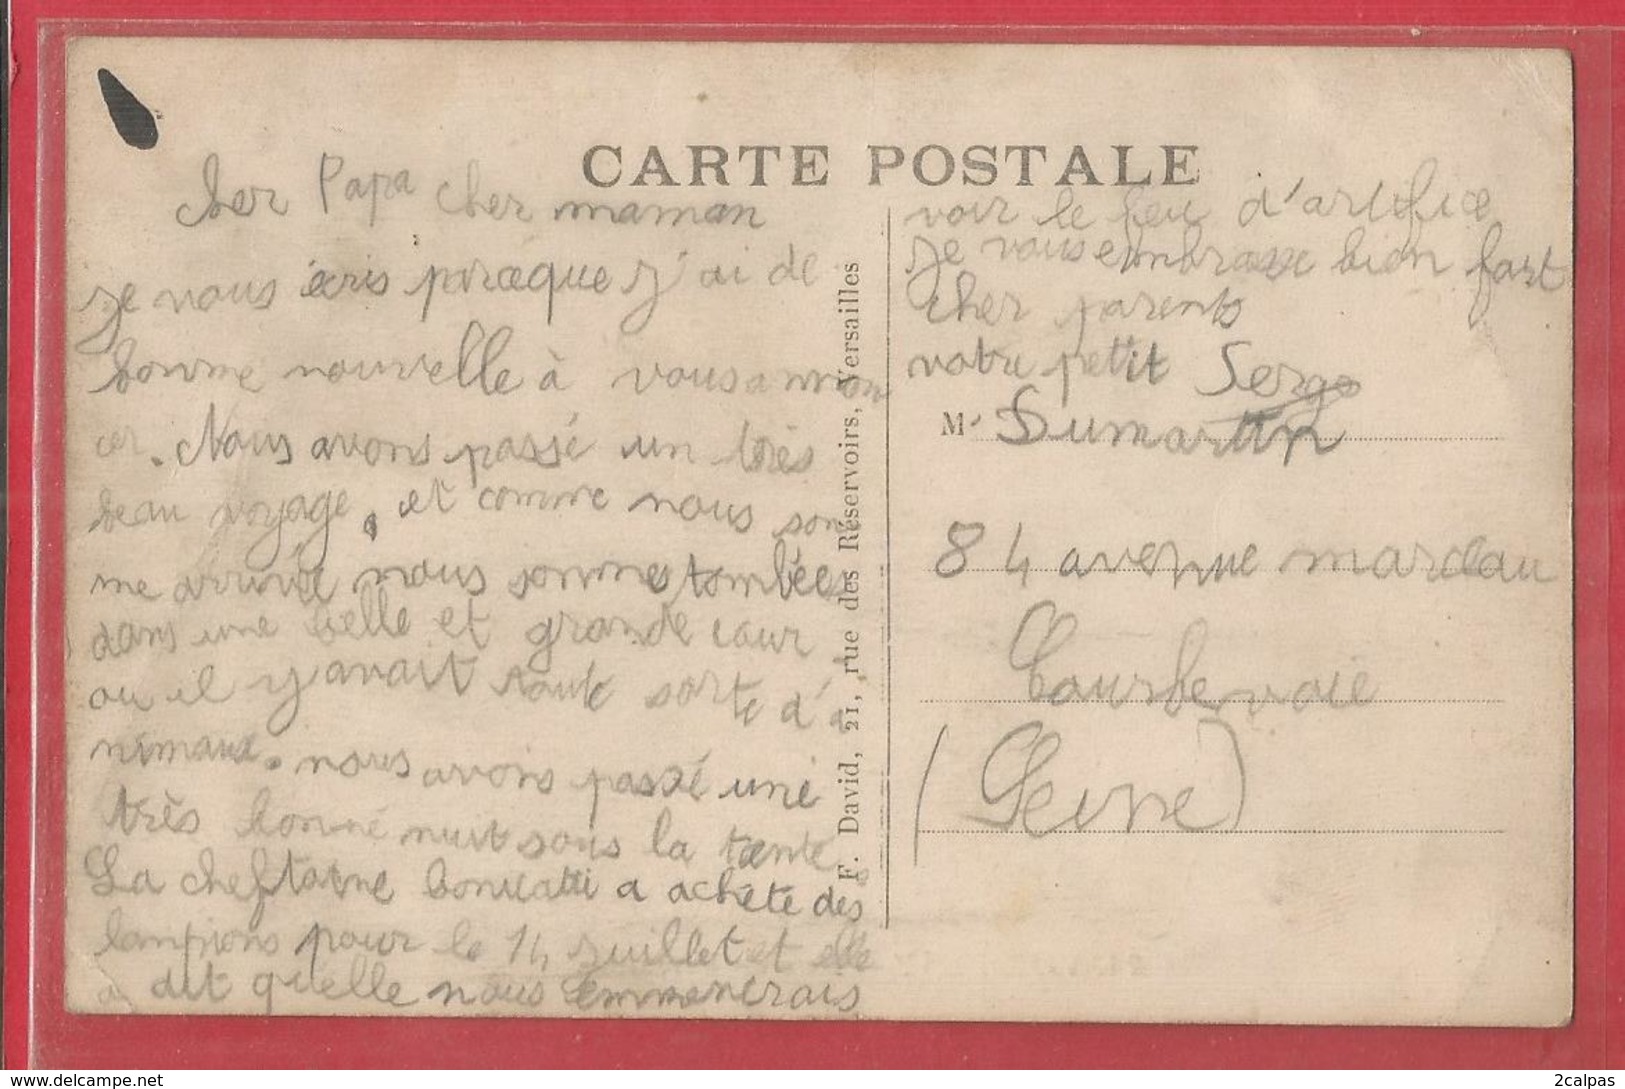 CARTE POSTALE
Cher Papa cher maman
je vous écris parceque j'ai de
bonne nouvelle à vous annon
cer. Nous avons passé un très
beau voyage, et comme nous som
me arrivé nous sommes tombées
dans une belle et grande cour
ou il y avait toute sorte d'a
nimaux. nous avons passé une
très bonne nuit sous la tente
La cheftaine a acheté des
lampions pour le 14 juillet et elle
a dit quelle nous emmenerais
voir le feu d'artifice
je vous embrasse bien fort
cher parents
votre petit Serge
M. Dumartin
84 avenue marceau
Courbevoie
(Seine)
F. David, 21, rue des Réservoirs, Versailles
2calpas